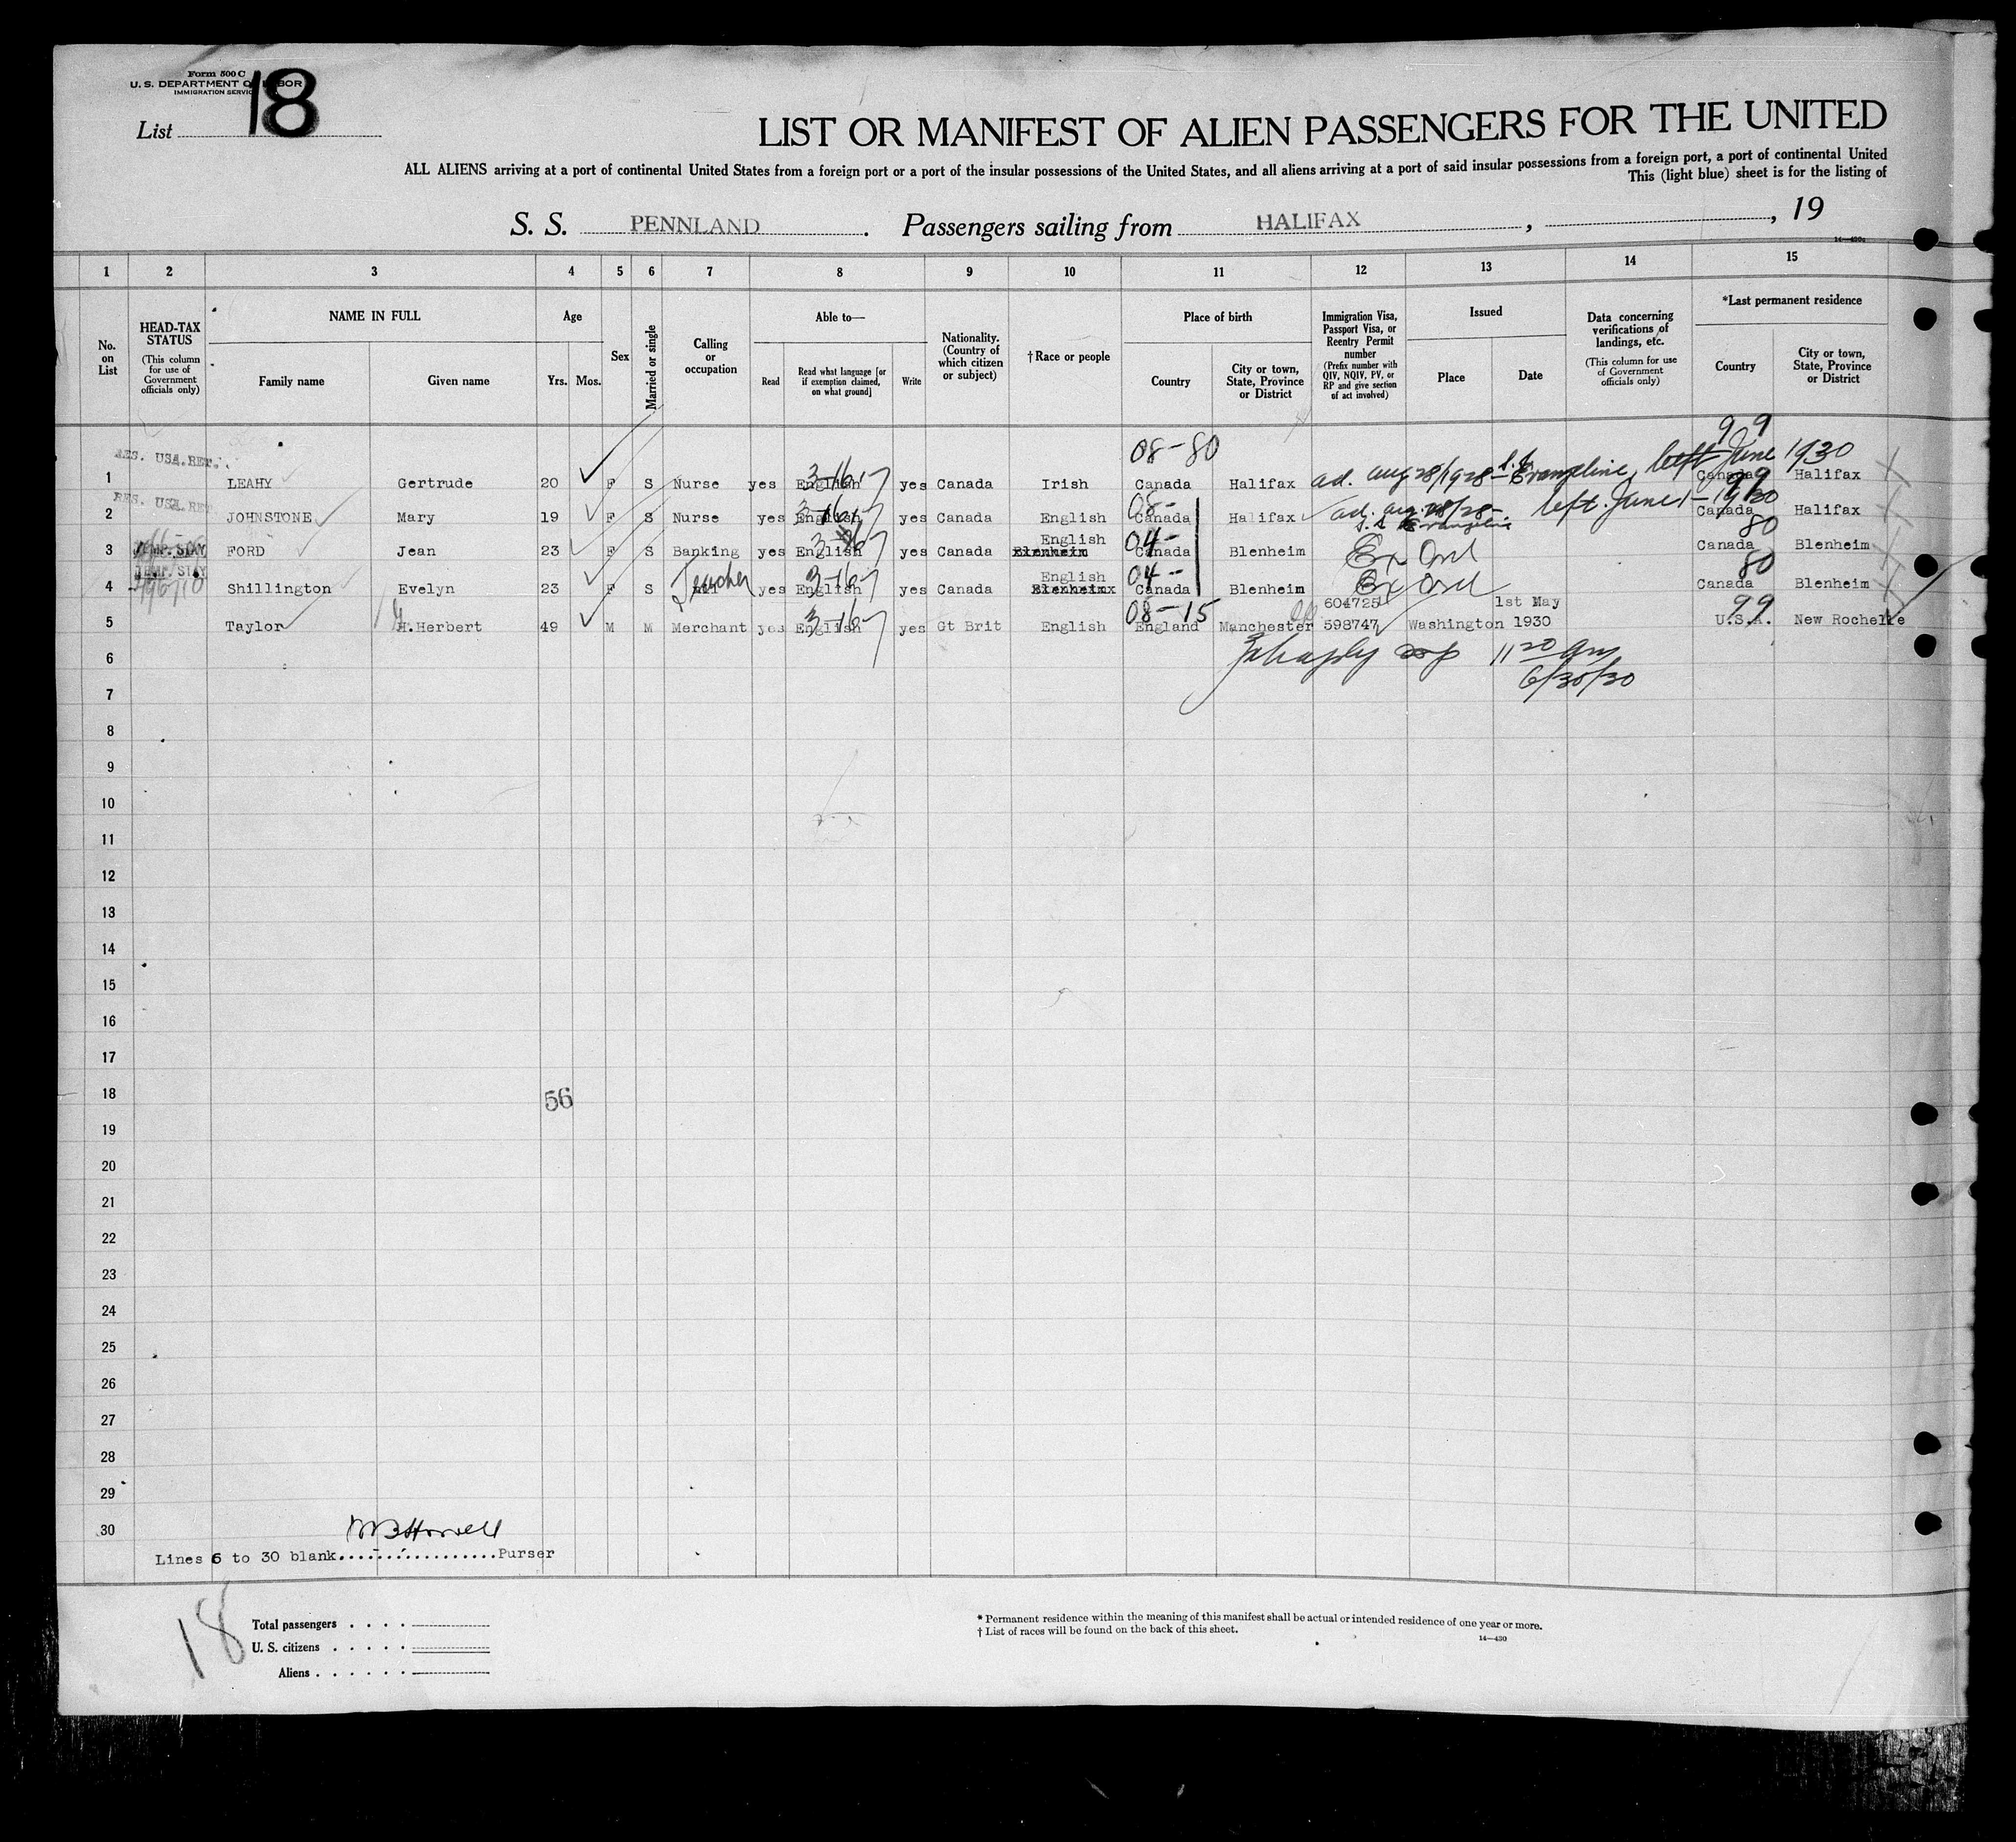 Form 500 C
U. S. DEPARTMENT OF LABOR
IMMIGRATION SERVICE
List 18
LIST OR MANIFEST OF ALIEN PASSENGERS FOR THE UNITED
ALL ALIENS arriving at a port of continental United States from a foreign port or a port of the insular possessions of the United States, and all aliens arriving at a port of said insular possessions from a foreign port, a port of continental United
This (light blue) sheet is for the listing of
S. S. PENNLAND. Passengers sailing from HALIFAX, , 19
14—430c
1 2 3 4 5 6 7 8 9 10 11 12 13 14 15
No. on List
HEAD-TAX STATUS (This column for use of Government officials only)
NAME IN FULL Family name Given name
Age Yrs. Mos.
Sex
Married or single
Calling or occupation
Able to— Read Read what language [or if exemption claimed, on what ground] Write
Nationality. (Country of which citizen or subject)
†Race or people
Place of birth Country City or town, State, Province or District
Immigration Visa, Passport Visa, or Reentry Permit number (Prefix number with QIV, NQIV, PV, or RP and give section of act involved)
Issued Place Date
Data concerning verifications of landings, etc. (This column for use of Government officials only)
*Last permanent residence Country City or town, State, Province or District
08-80 99
RES. USA.RET.
1 LEAHY Gertrude 20 F S Nurse yes English 3-16 yes Canada Irish Canada Halifax ad. aug 28/1928 - S.S. Evangeline, left June 1930 Canada Halifax
RES. USA.RET. 08- 99
2 JOHNSTONE Mary 19 F S Nurse yes English 3-16 yes Canada English Canada Halifax ad. aug. 28/28 - S.S. Evangeline left. June 1-1930 Canada Halifax
TEMP. STAY 04- 80
3 FORD Jean 23 F S Banking yes English 3-16 yes Canada English Blenheim Canada Blenheim Ex Ord Canada Blenheim
TEMP. STAY 04- 80
4 Shillington Evelyn 23 F S Teacher yes English 3-16 yes Canada English Blenheimx Canada Blenheim Ex Ord Canada Blenheim
08-15 604725 1st May 99
5 Taylor H.Herbert 49 M M Merchant yes English 3-16 yes Gt Brit English England Manchester 598747 Washington 1930 U.S.A. New Rochelle
6 11 20 am
7 6/30/30
8
9
10
11
12
13
14
15
16
17
18 56
19
20
21
22
23
24
25
26
27
28
29
30
Lines 6 to 30 blank.................Purser
18
Total passengers . . . .
U. S. citizens . . . . .
Aliens . . . . . .
* Permanent residence within the meaning of this manifest shall be actual or intended residence of one year or more.
† List of races will be found on the back of this sheet.
14—430